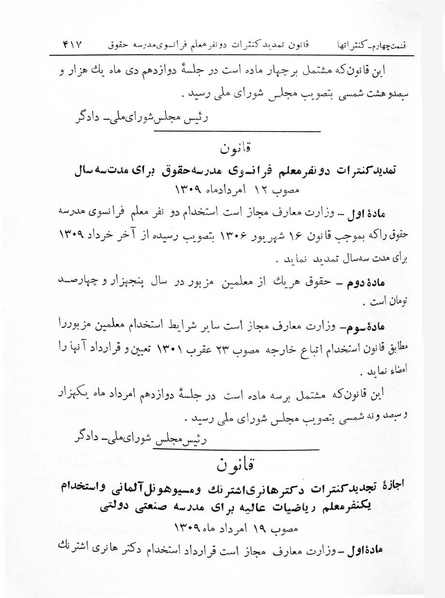 قسمت چهارم ـ کنتراتها قانون تمدید کنترات دو نفر معلم فرانسوی مدرسه حقوق ۴۱۷
این قانون که مشتمل بر چهار ماده است در جلسهٔ دوازدهم دی ماه یك هزار و
سیصد و هشت شمسی بتصویب مجلس شورای ملی رسید .
رئیس مجلس شورای ملی ـ دادگر
قانون
تمدید کنترات دو نفر معلم فرانسوی مدرسه حقوق برای مدت سه سال
مصوب ۱۲ امرداد ماه ۱۳۰۹
مادهٔ اول ـ وزارت معارف مجاز است استخدام دو نفر معلم فرانسوی مدرسه
حقوق را که بموجب قانون ۱۶ شهریور ۱۳۰۶ بتصویب رسیده از آخر خرداد ۱۳۰۹
برای مدت سه سال تمدید نماید .
مادهٔ دوم ـ حقوق هریك از معلمین مزبور در سال پنجهزار و چهارصد
تومان است .
مادهٔ سوم ـ وزارت معارف مجاز است سایر شرایط استخدام معلمین مزبور را
مطابق قانون استخدام اتباع خارجه مصوب ۲۳ عقرب ۱۳۰۱ تعیین و قرارداد آنها را
امضاء نماید .
این قانون که مشتمل بر سه ماده است در جلسهٔ دوازدهم امرداد ماه یکهزار
و سیصد و نه شمسی بتصویب مجلس شورای ملی رسید .
رئیس مجلس شورای ملی ـ دادگر
قانون
اجازهٔ تجدید کنترات دکتر هانری اشترنك و مسیو هونل آلمانی و استخدام
یکنفر معلم ریاضیات عالیه برای مدرسه صنعتی دولتی
مصوب ۱۹ امرداد ماه ۱۳۰۹
مادهٔ اول ـ وزارت معارف مجاز است قرارداد استخدام دکتر هانری اشترنك